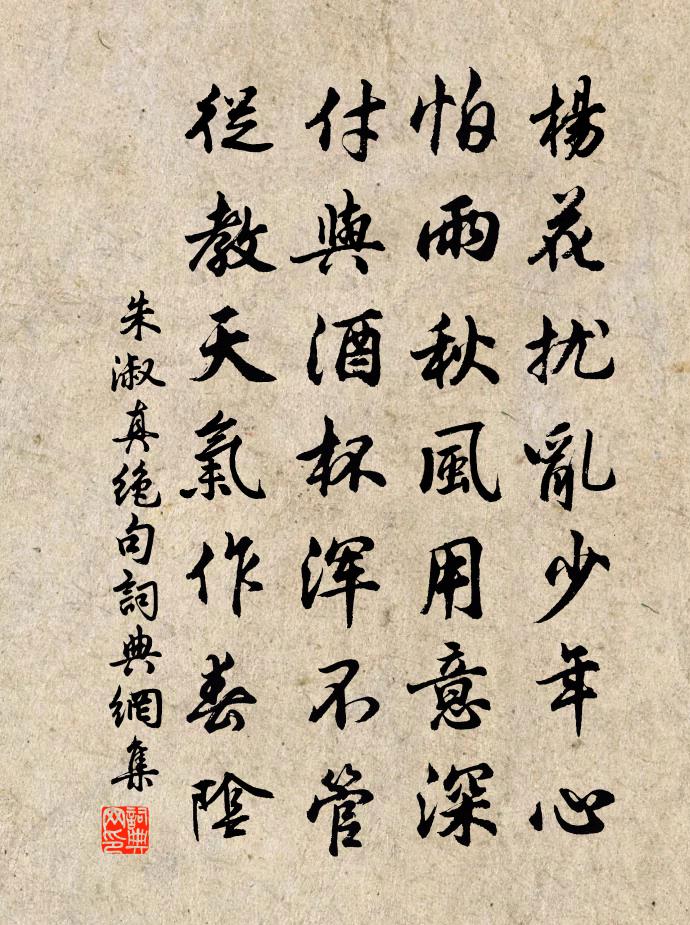 楊花扰亂少年心
怕雨秋風用意深
付與酒杯渾不管
從教天氣作春陰
朱淑真絶句詞典網集
詞典
网印